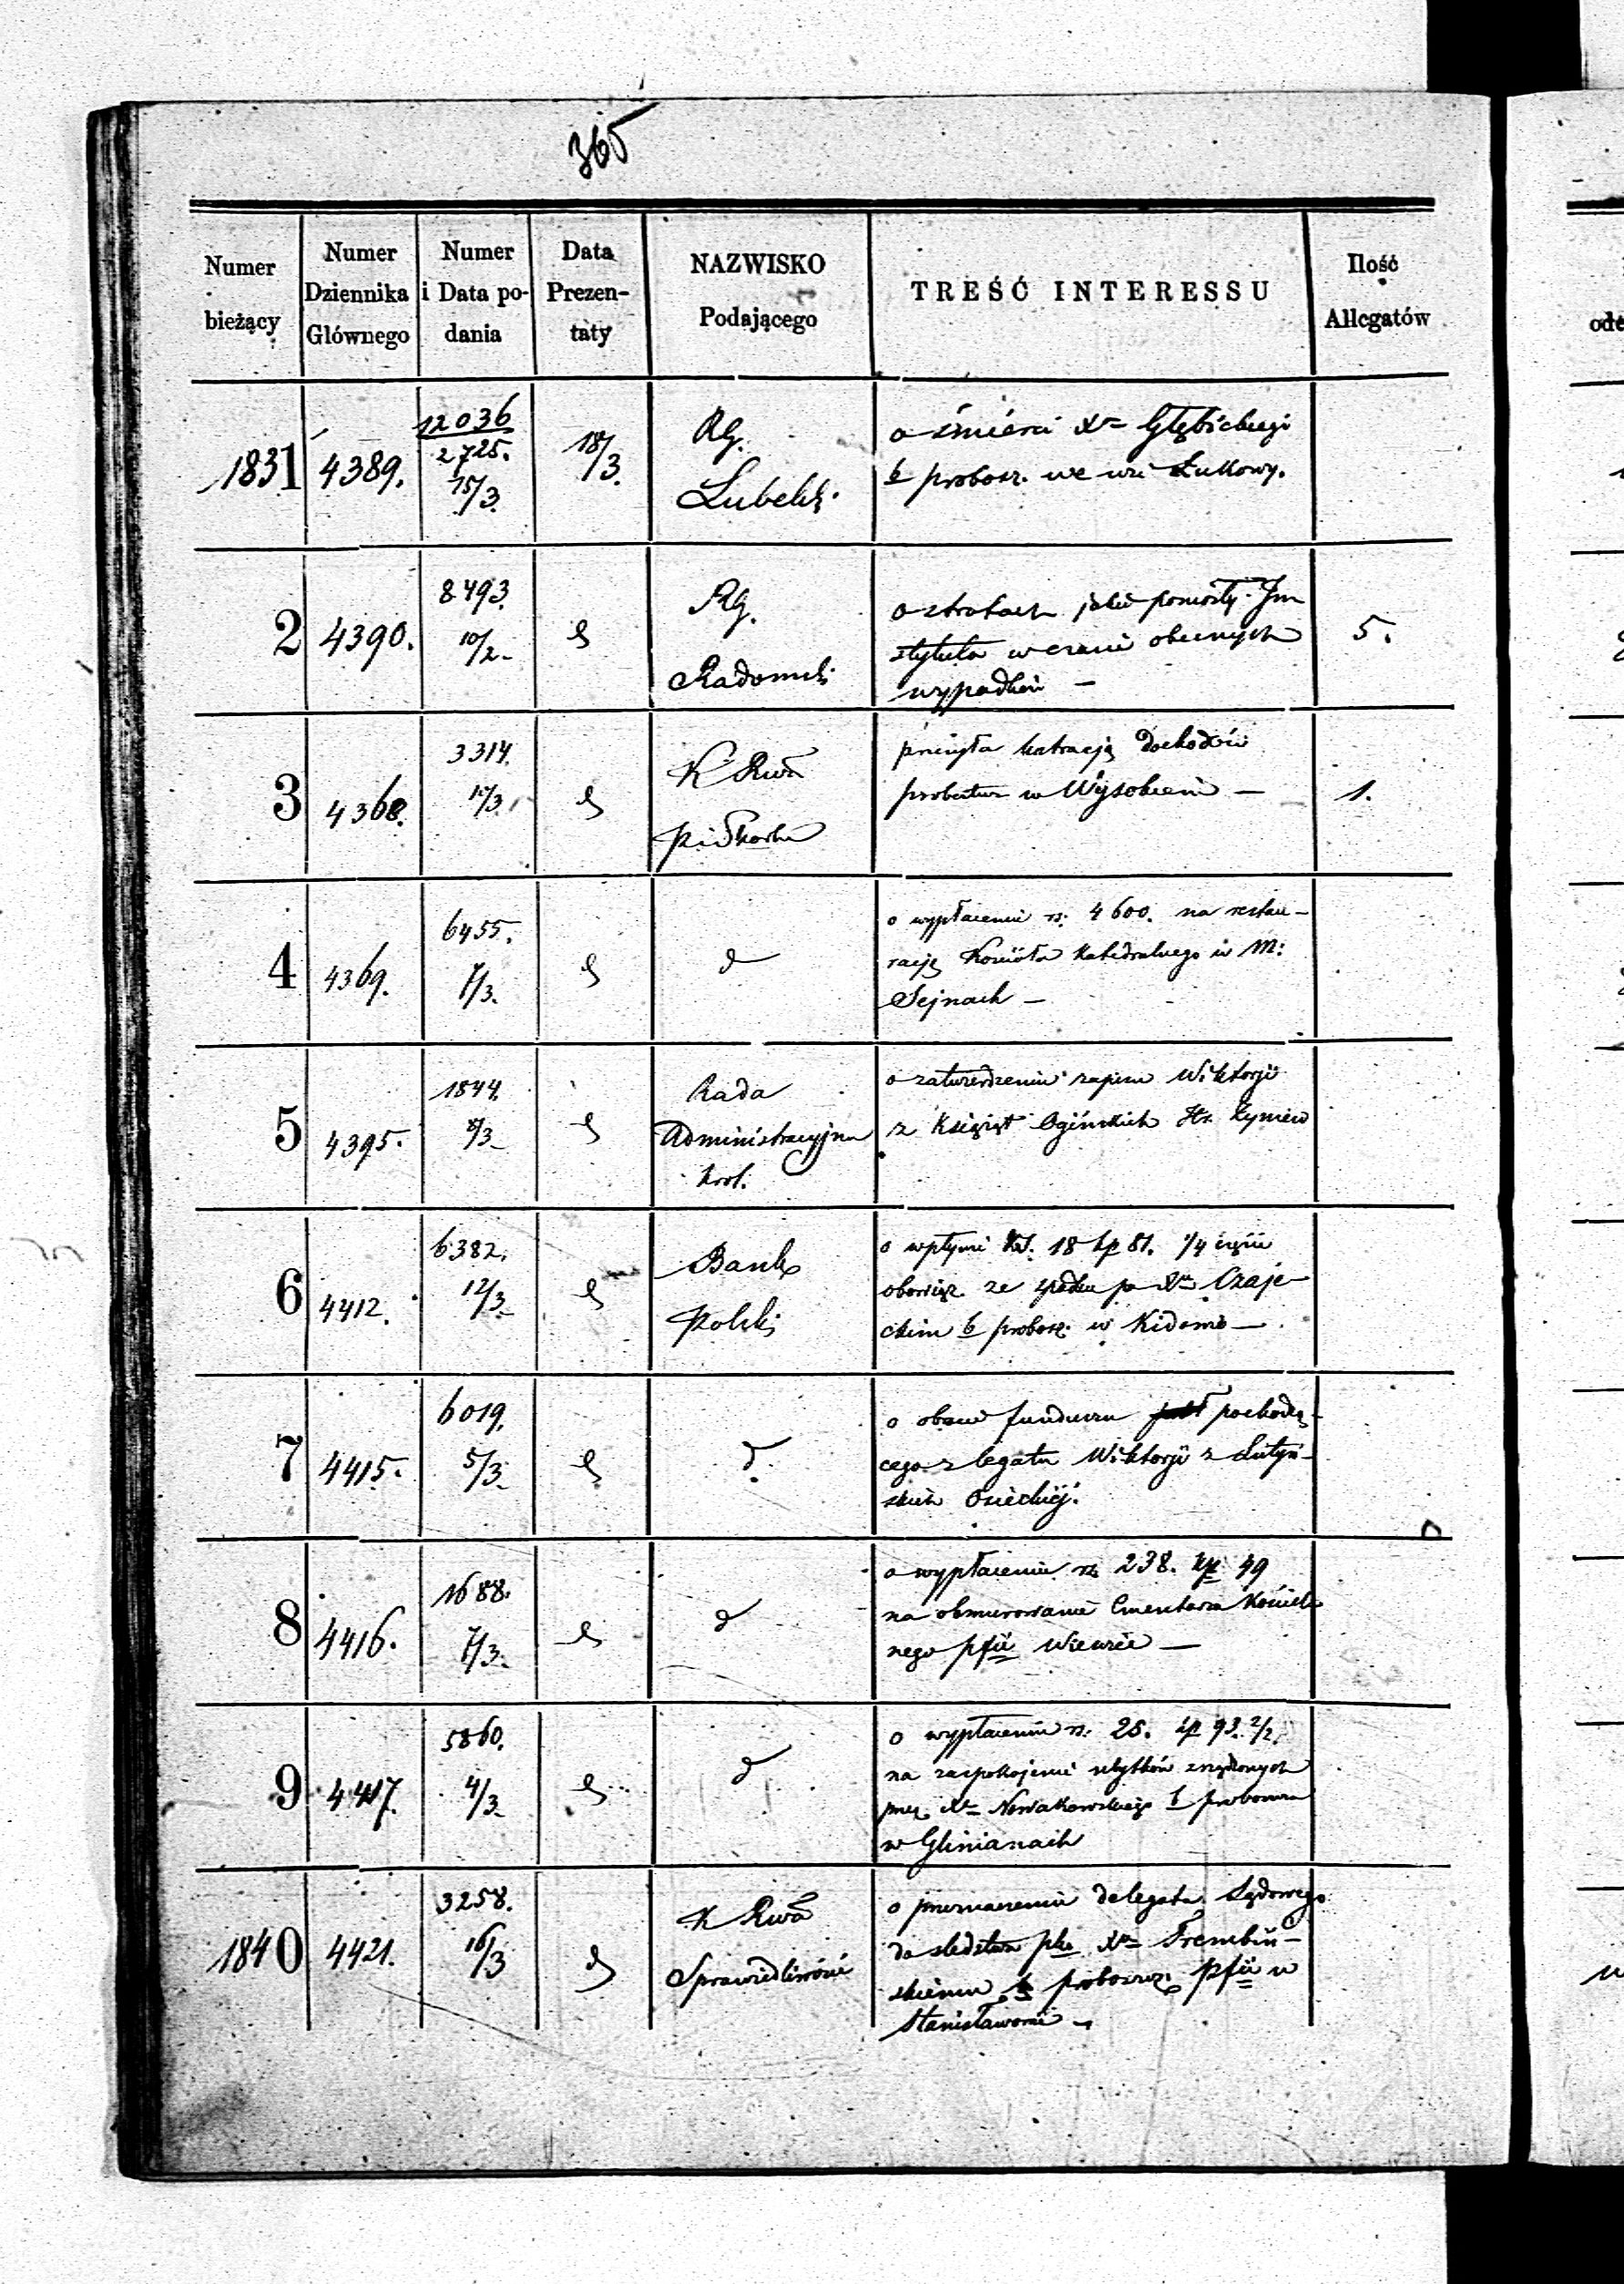 365
Numer bieżący
Numer Dziennika Głównego
Numer i Data podania
Data Prezentaty
NAZWISKO Podającego
TREŚĆ INTERESSU
Ilość Allegatów
1831 4389. 12036 2725. 15/3. 18/3.
Rg.
Lubelski
o śmierci Xa Głębickiego
b probosz. we wsi Łukowy.
2 4390. 8493. 10/2
Rg.
Radomski
o stratach jakie poniosły In
stytuta w czasie obecnych
wypadków —
5.
3 4368. 3314.
K Rwa
przysyła
dochodów
w Wysokiem —
1.
4 4369. 6455. 7/3.
d
o wypłacenie rs. 4600. na restau-
racją Kościoła Katedralnego w M:
Sejnach —
5 4395. 1844. 8/3
Rada
Administracyjna
Król.
o zatwierdzeniu zapisu Wiktorji
z Książąt Ogińskich Hr.
6 4412. 6382. 12/3
Bank
Polski
o wpływie rs. 18 kp 81. 1/4 części
obowiąz. ze spadku po Xu Czaje-
ckim b probosz. w
7 4415. 6019. 5/3
d.
o funduszu pochodzą-
cego z legatu Wiktorji z Lutyń-
skich Osieckiej.
8 4416. 1688. 7/3.
d
o wypłacenie rs. 238. kp 49
na obmurowanie Cmentarza Kościel
nego pfii Wiewiec —
9 4417. 5860. 4/3
d
o wypłacenie rs. 28. kp 93. 1/2.
na zaspokojenie ubytków zrządzonych
przez Xa Nowakowskiego b proboszcza
w Glinianach
1840 4421. 3258. 16/3
K Rwa
Sprawiedliwości
o przeznaczenie delegata Sądowego
do śledztwa pko Xu Trembiń-
skiemu b proboszcz. pfii w
Stanisławowie —